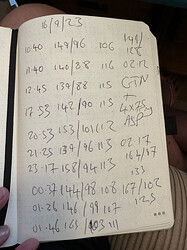 16/9/23
149/
128
10:40 149/96 106
11:40 140/88 116 02:12
12:45 139/88 115 GTN
17 53 142/90 115 4x75
ASP
20:53 153/101 112
21:25 139/96 113 02:17
164/97
23:17 158/94 113
133
00:37 144/98 108 167/102
01:26 146/99 107 123
01:46 163/103 111